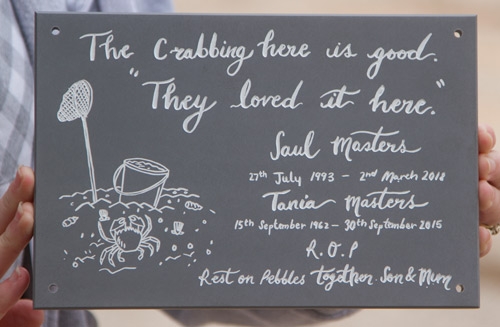 The Crabbing here is good.
"They loved it here."
Saul Masters
27th July 1993 – 2nd March 2018
Tania Masters
15th September 1962 – 30th September 2015
R.O.P
Rest on Pebbles together. Son & Mum